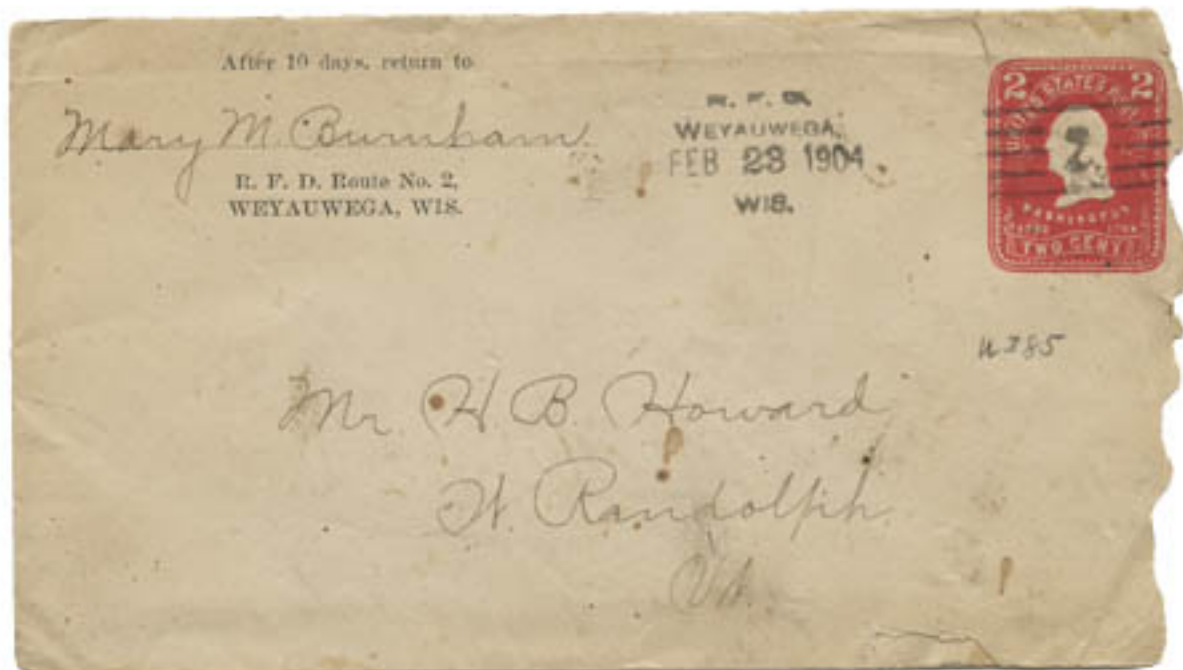 After 10 days, return to
Mary M. Burnham.
R. F. D. Route No. 2,
WEYAUWEGA, WIS.
R. F. D.
WEYAUWEGA,
FEB 23 1904
WIS.
2 2
UNITED STATES
2
WASHINGTON
TWO CENTS
U385
Mr. H. B. Howard
W. Randolph
Vt.